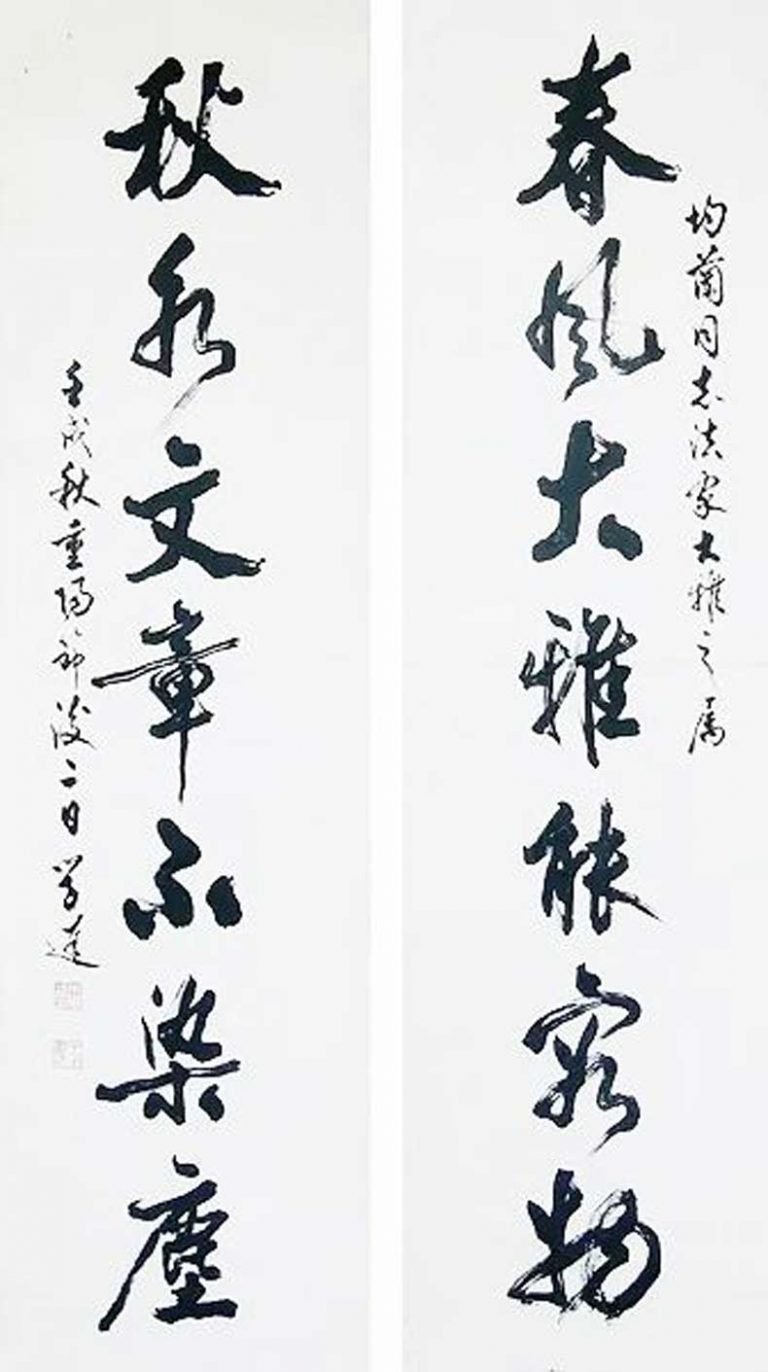 春风大雅能容物
均蘭同志法家大雅之属
秋水文章不染塵
壬戌秋重陽節後二日